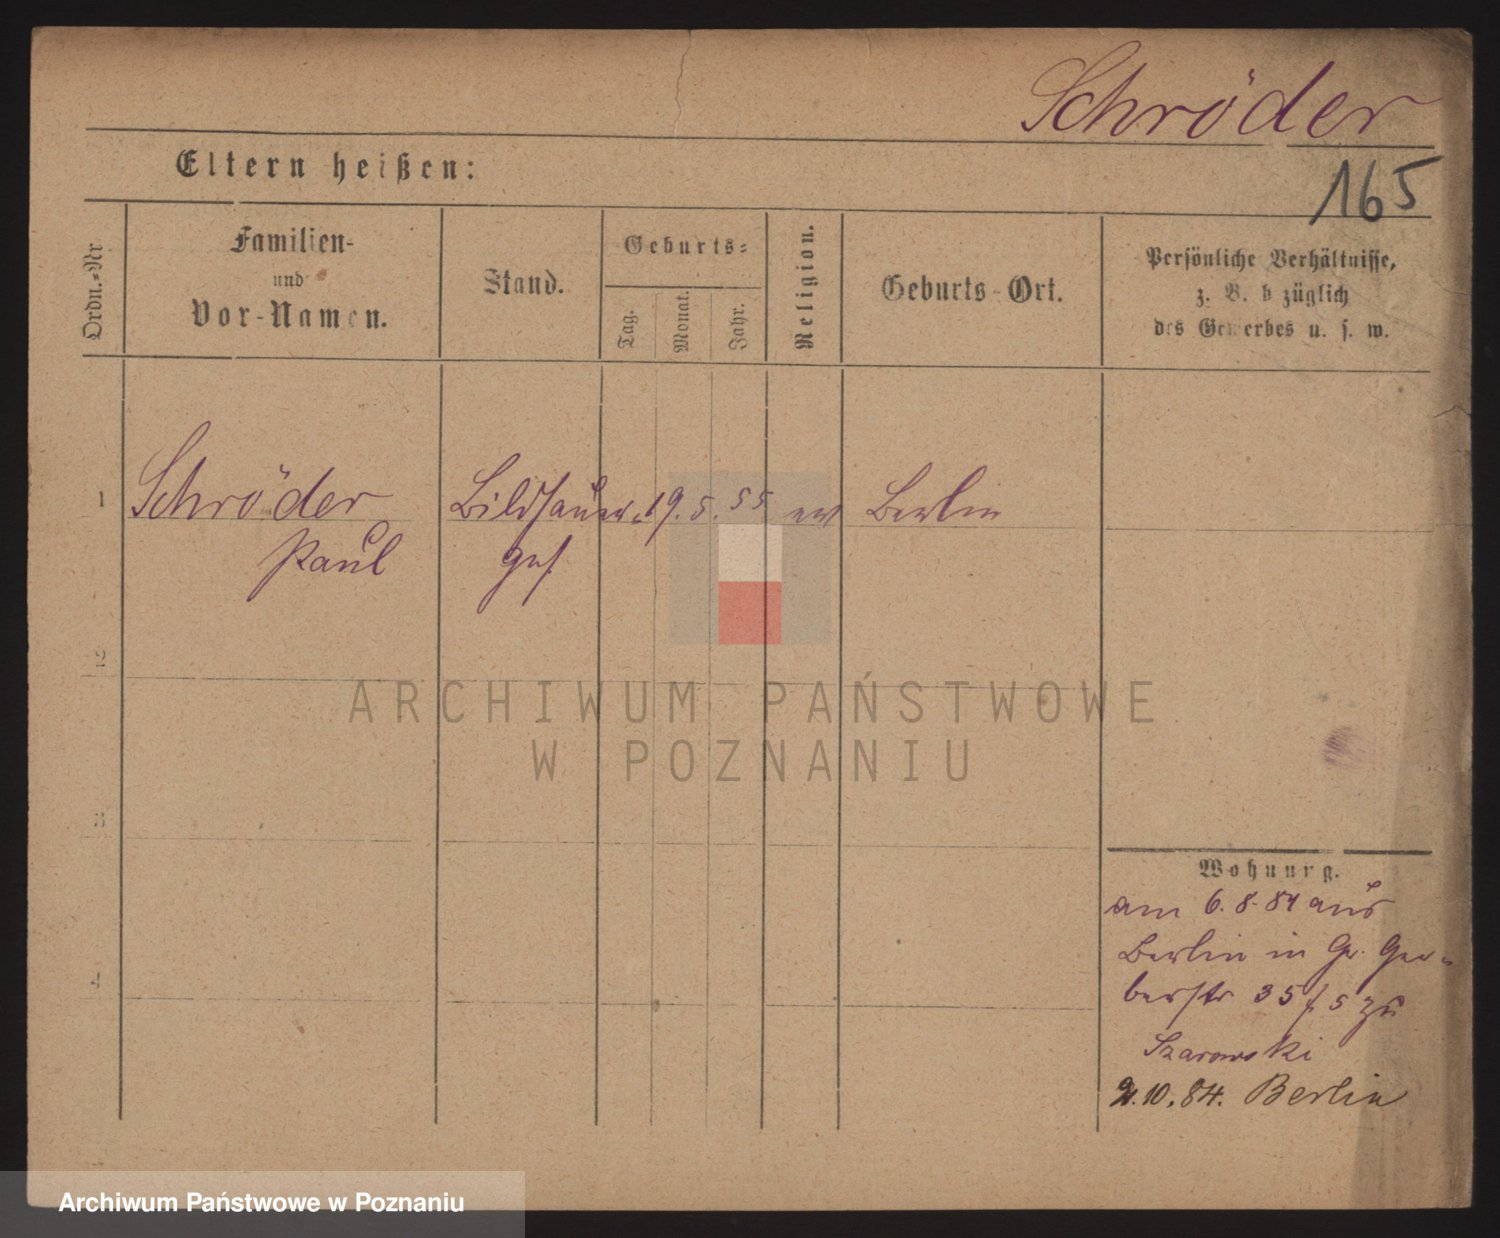 Schröder
165
Eltern heißen:
Ordn.-Nr.
Familien-
und
Vor-Namen.
Stand.
Geburts-
Tag.
Monat.
Jahr.
Religion.
Geburts-Ort.
Persönliche Verhältnisse,
z. B. bezüglich
des Gewerbes u. s. w.
1 Schröder Bildhauer- 19. 5. 55 ev Berlin
Paul
2
ARCHIWUM PAŃSTWOWE
W POZNANIU
3
Wohnung.
am 6. 8. 84 aus
4 Berlin in Gr. Ger-
berstr 35 zu
10. 84. Berlin
Archiwum Państwowe w Poznaniu